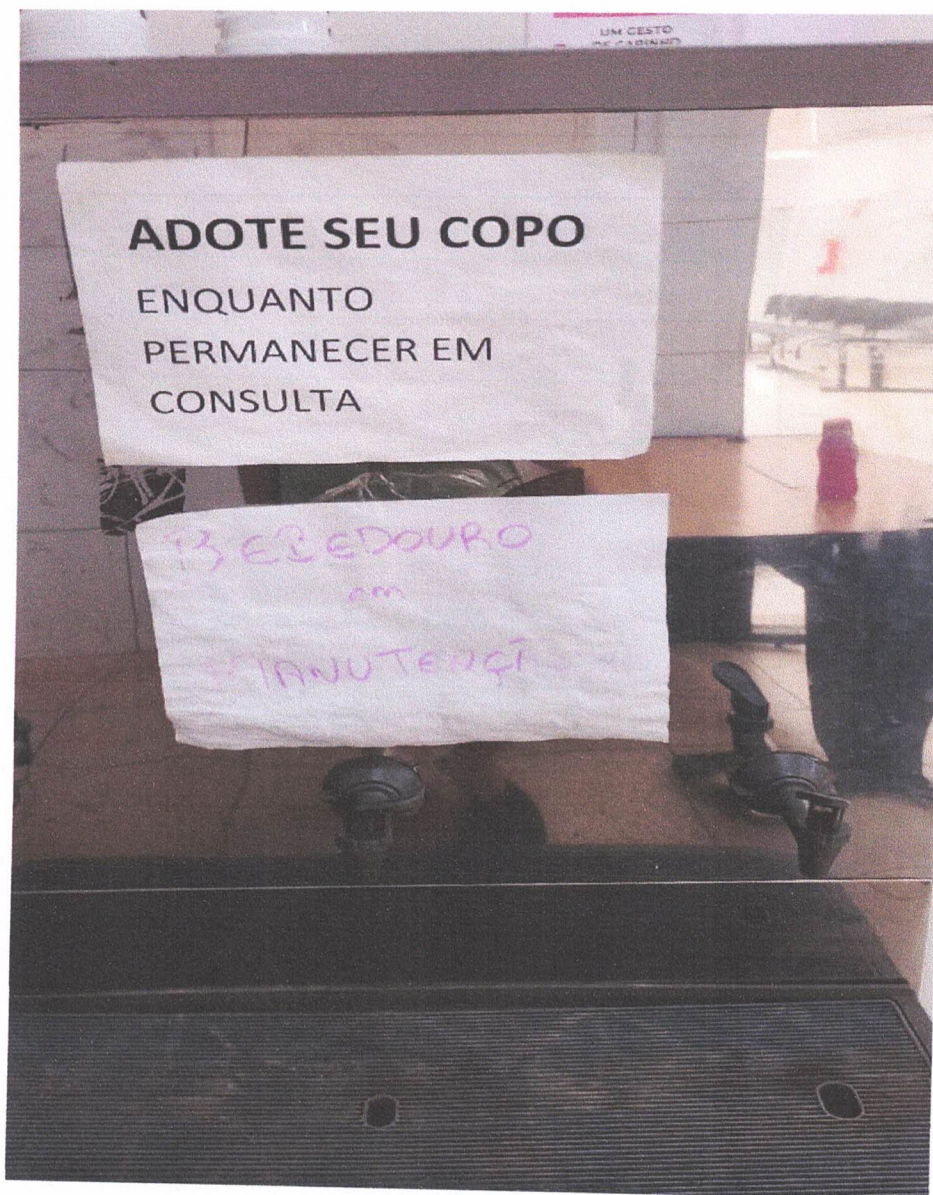 UM GESTO
DE CARINHO
ADOTE SEU COPO
ENQUANTO
PERMANECER EM
CONSULTA
BEBEDOURO
em
MANUTENÇÃ